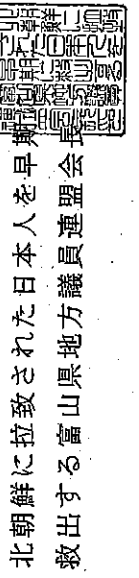 北朝鮮に拉致された日本人を早期
救出する富山県地方議員連盟会長